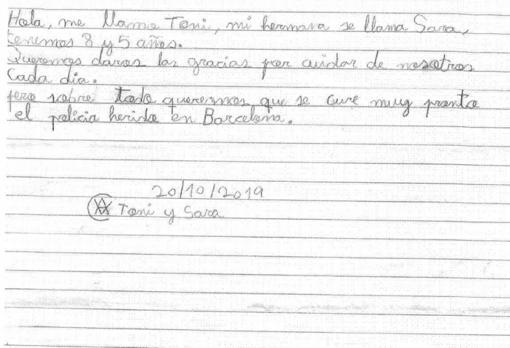 Hola, me llamo Toni, mi hermana se llama Sara,
tenemos 8 y 5 años.
Queremos daros las gracias por cuidar de nosotros
Cada dia.
Pero sobre todo queremos que se cure muy pronto
el policia herido en Barcelona.
20/10/2019
Toni y Sara